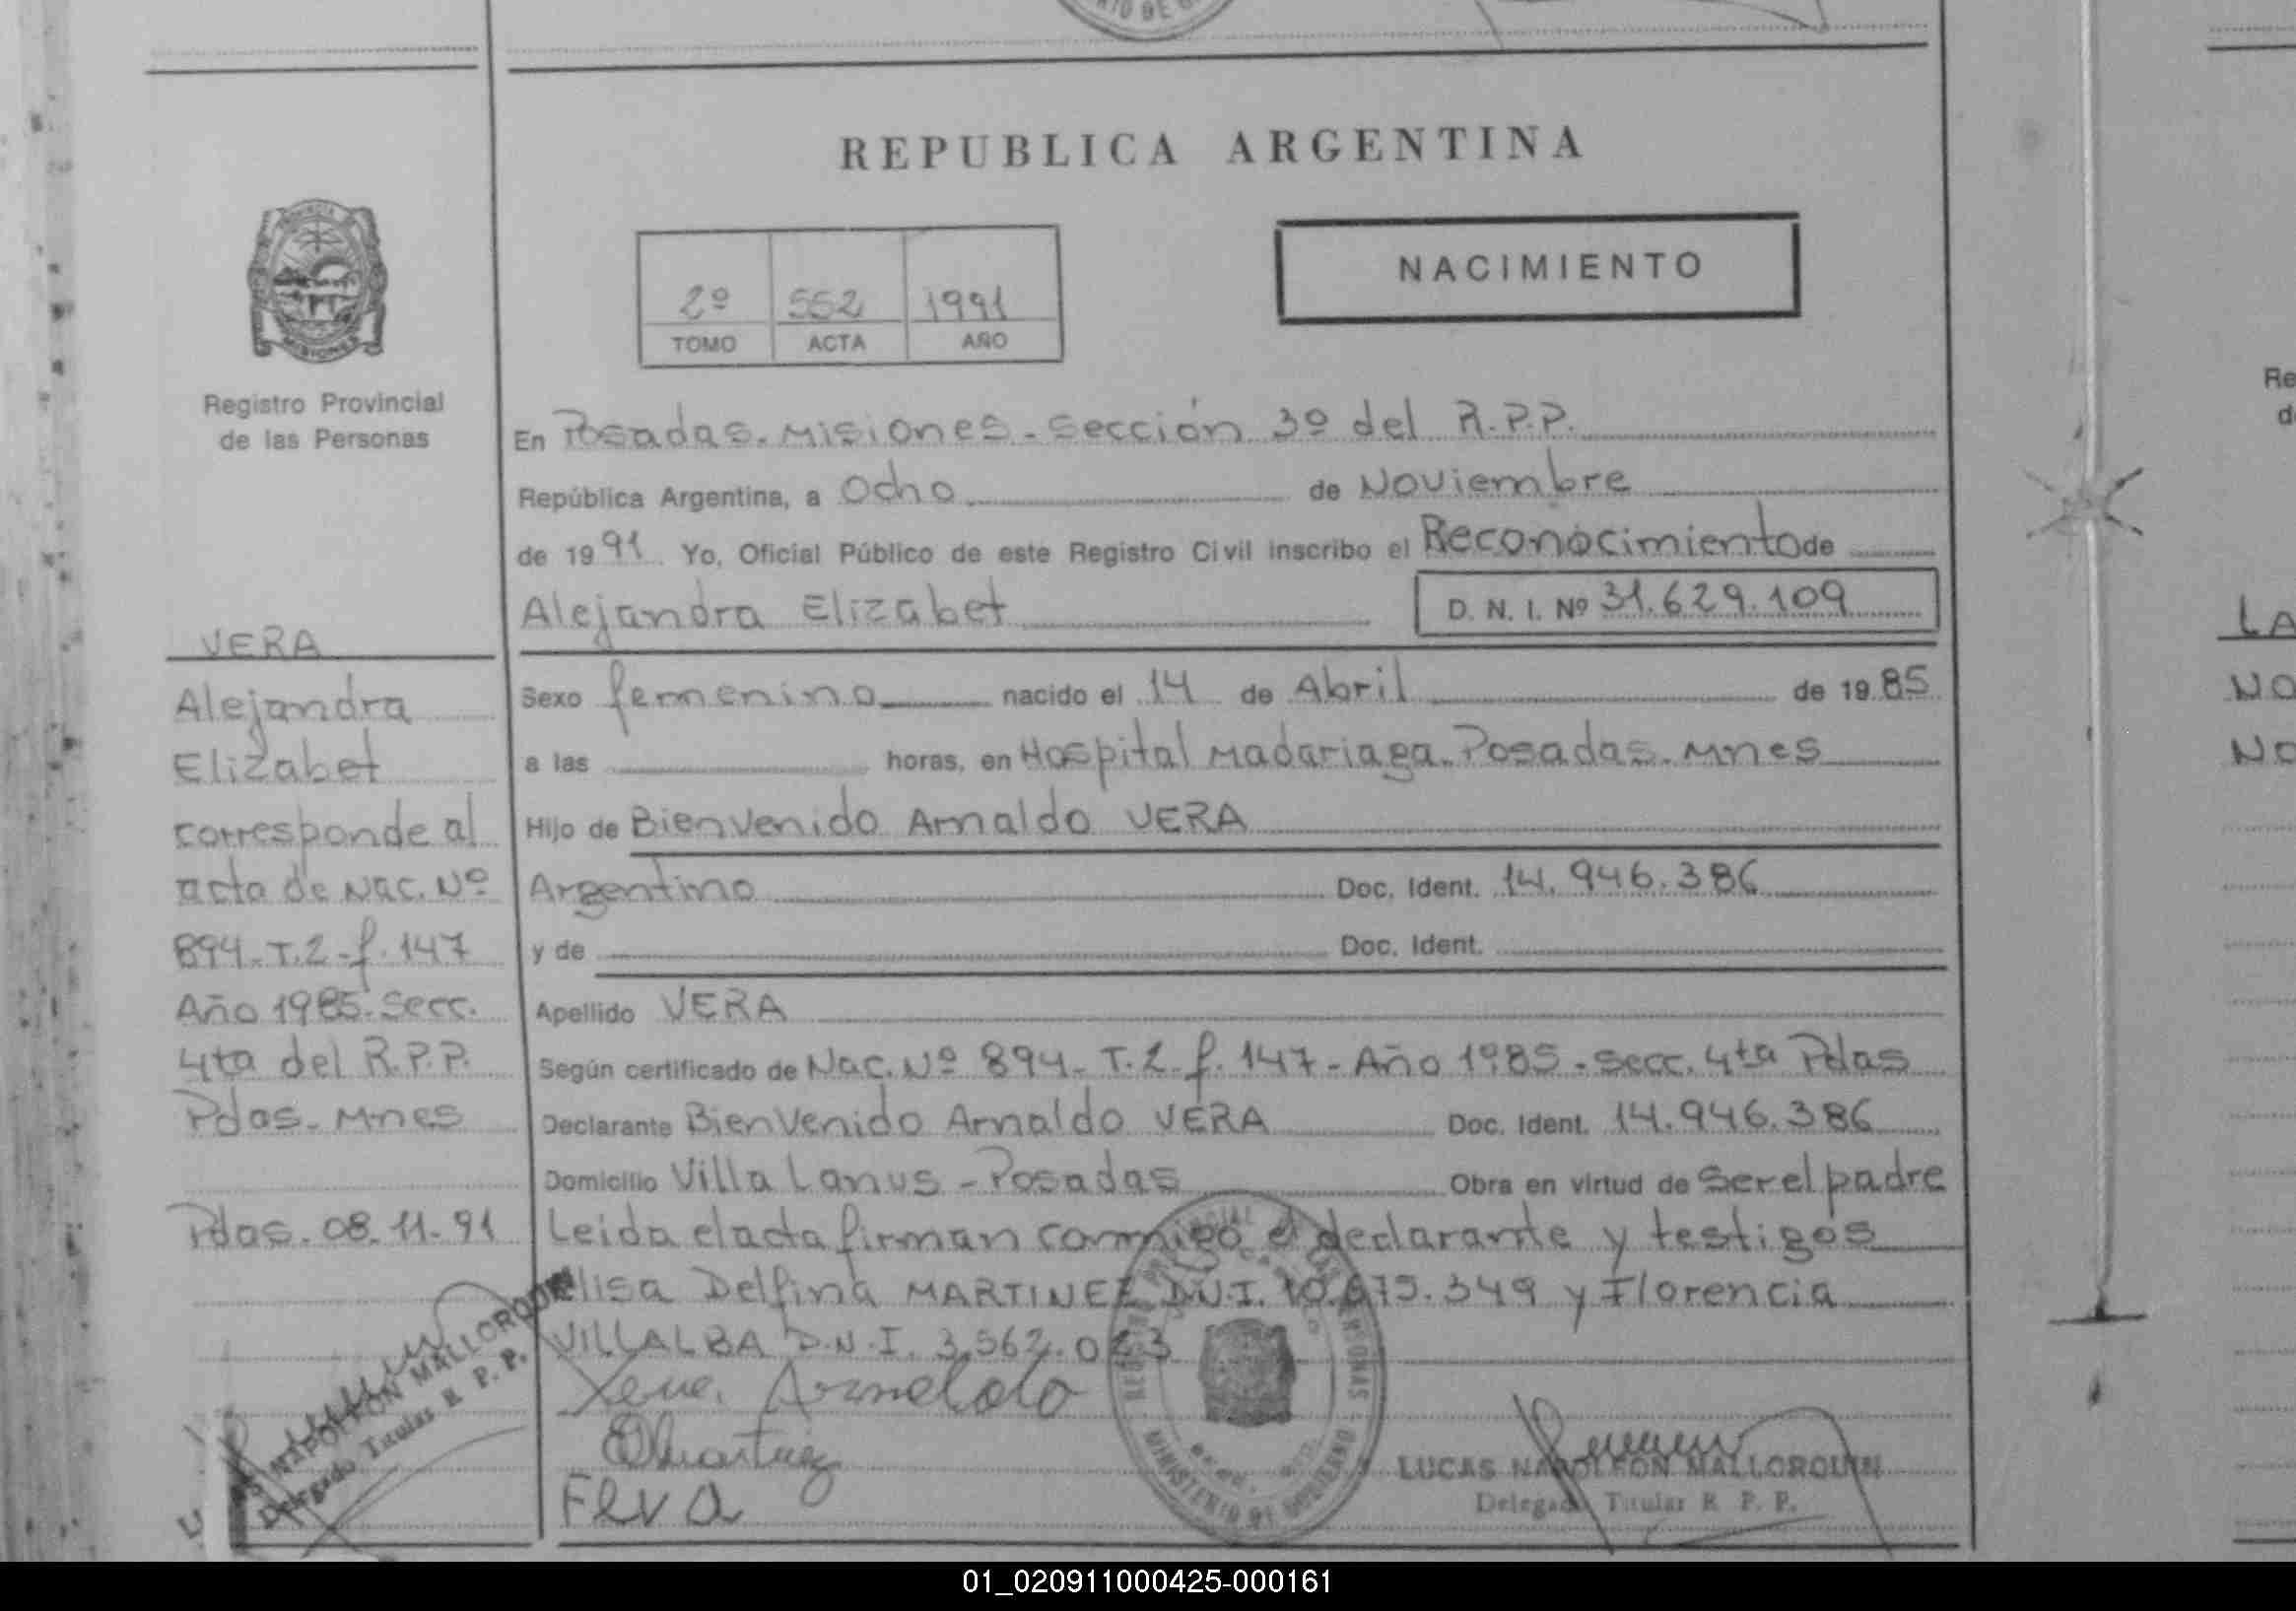 REPUBLICA ARGENTINA
NACIMIENTO
2º 552 1991
TOMO ACTA AÑO
Registro Provincial
de las Personas
VERA
Alejandra
Elizabet
corresponde al
acta de Nac. Nº
894-T.2-f.147
Año 1985-Secc.
4ta del R.P.P.
Pdas-Mnes
Pdas. 08.11.91
NAPOLEON MALLORQUIN
Delegado Titular R. P. P.
En Posadas. Misiones. Sección 3º del R.P.P.
República Argentina, a Ocho de Noviembre
de 1991 Yo, Oficial Público de este Registro Civil inscribo el Reconocimiento de
Alejandra Elizabet D. N. I. Nº 31.629.109
Sexo femenino nacido el 14 de Abril de 1985
a las horas, en Hospital Madariaga. Posadas. Mnes
Hijo de Bienvenido Arnaldo VERA
Argentino Doc. Ident. 14.946.386
y de Doc. Ident.
Apellido VERA
Según certificado de Nac. Nº 894-T.2-f.147-Año 1985-Secc. 4ta Pdas
Declarante Bienvenido Arnaldo VERA Doc. Ident. 14.946.386
Domicilio Villa Lanus - Posadas Obra en virtud de ser el padre
Leida el acta firman conmigo el declarante y testigos
Elisa Delfina MARTINEZ D.N.I. y Florencia
VILLALBA D.N.I.
Arnaldo
LUCAS NAPOLEON MALLORQUIN
Delegado Titular R. P. P.
MINISTERIO DE GOBIERNO
LA
NO
NO
Re
d
01_020911000425-000161